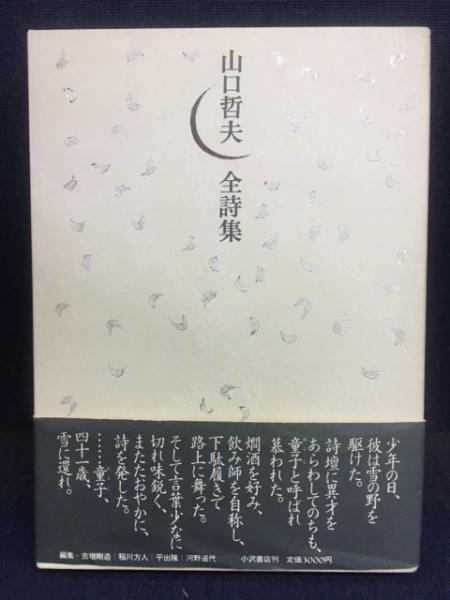 山口哲夫
全詩集
少年の日、
彼は雪の野を
駆けた。
詩壇に異才を
あらわしてのちも、
童子と呼ばれ
慕われた。
燗酒を好み、
飲み師を自称し、
下駄履きで
路上に舞った。
そして言葉少なに
切れ味鋭く、
またたおやかに、
詩を発した。
……童子、
四十一歳、
雪に還れ。
編集－吉増剛造｜稲川方人｜平出隆｜河野道代
小沢書店刊 定価3000円